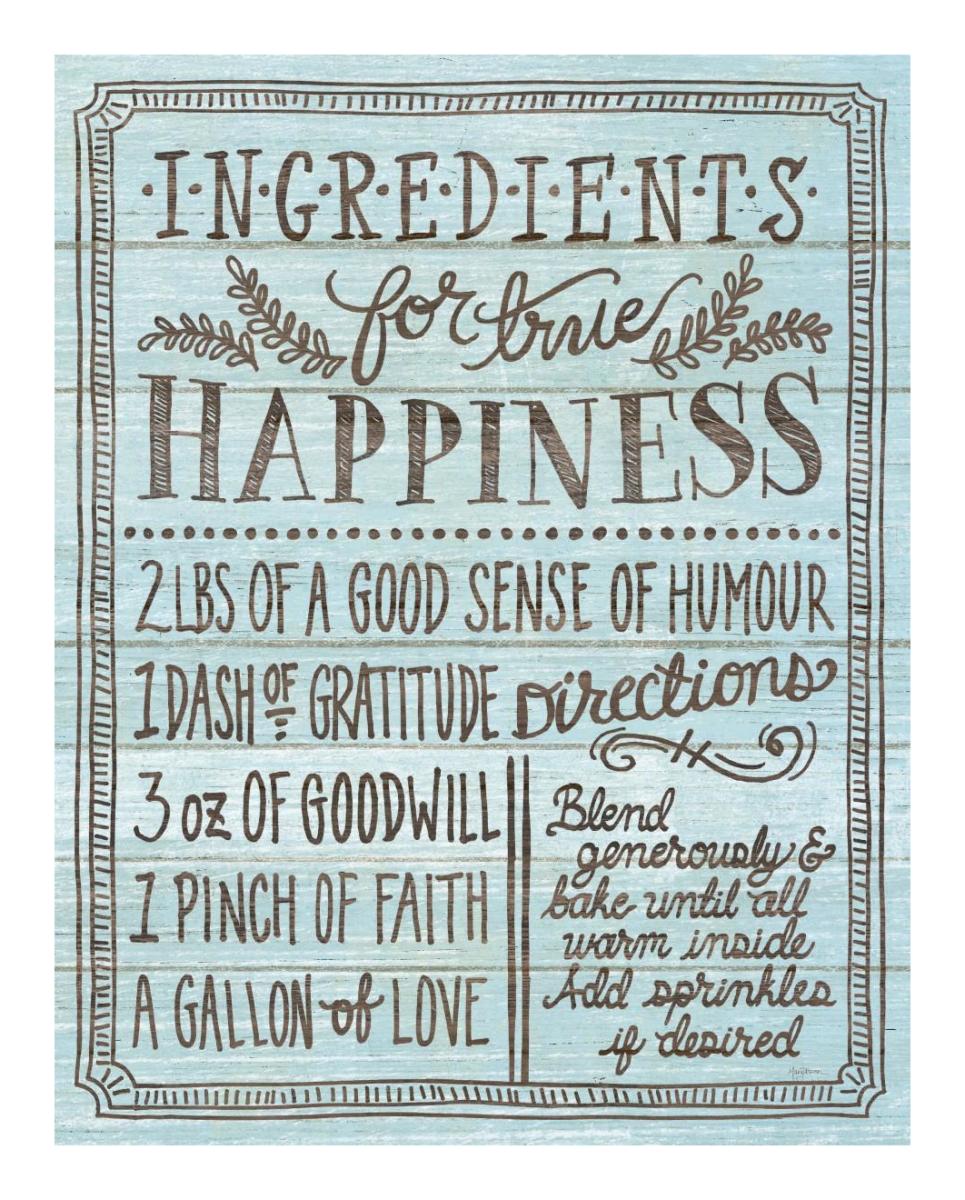 ·I·N·G·R·E·D·I·E·N·T·S·
for true
HAPPINESS
2 LBS OF A GOOD SENSE OF HUMOUR
1 DASH OF GRATITUDE
3 oz OF GOODWILL
1 PINCH OF FAITH
A GALLON of LOVE
Directions
Blend
generously &
bake until all
warm inside
Add sprinkles
if desired